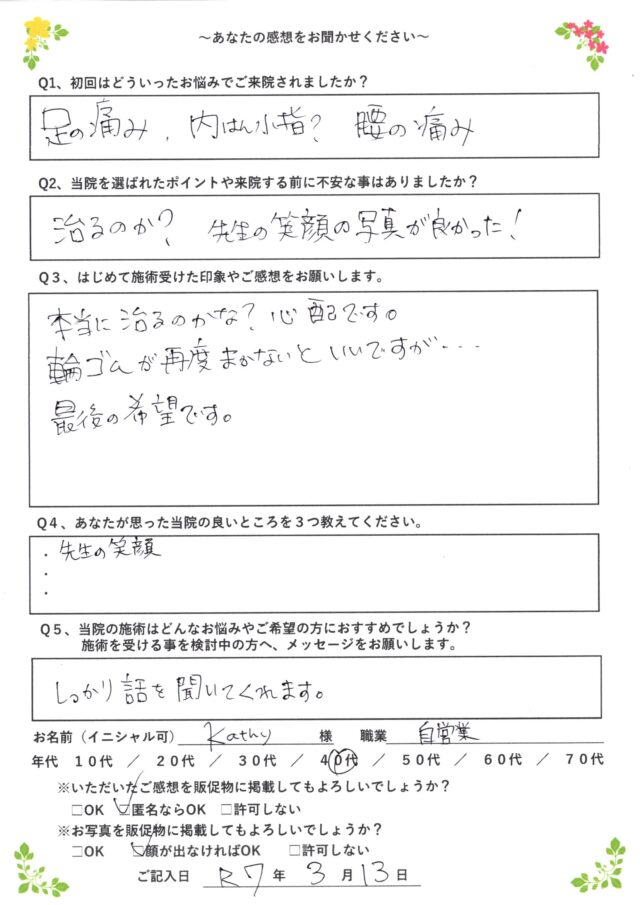 ～あなたの感想をお聞かせください～
Q1、初回はどういったお悩みでご来院されましたか？
足の痛み、内はん小指？ 腰の痛み
Q2、当院を選ばれたポイントや来院する前に不安な事はありましたか？
治るのか？ 先生の笑顔の写真が良かった！
Q３、はじめて施術受けた印象やご感想をお願いします。
本当に治るのかな？心配です。
輪ゴムが再度まかないといいですが・・・
最後の希望です。
Q４、あなたが思った当院の良いところを３つ教えてください。
・先生の笑顔
・
・
Q５、当院の施術はどんなお悩みやご希望の方におすすめでしょうか？
施術を受ける事を検討中の方へ、メッセージをお願いします。
しっかり話を聞いてくれます。
お名前（イニシャル可） Kathy 様 職業 自営業
年代 １０代 ／ ２０代 ／ ３０代 ／ ４０代 ／ ５０代 ／ ６０代 ／ ７０代
※いただいたご感想を販促物に掲載してもよろしいでしょうか？
□OK ☑匿名ならOK □許可しない
※お写真を販促物に掲載してもよろしいでしょうか？
□OK ☑顔が出なければOK □許可しない
ご記入日 R7 年 3 月 13 日